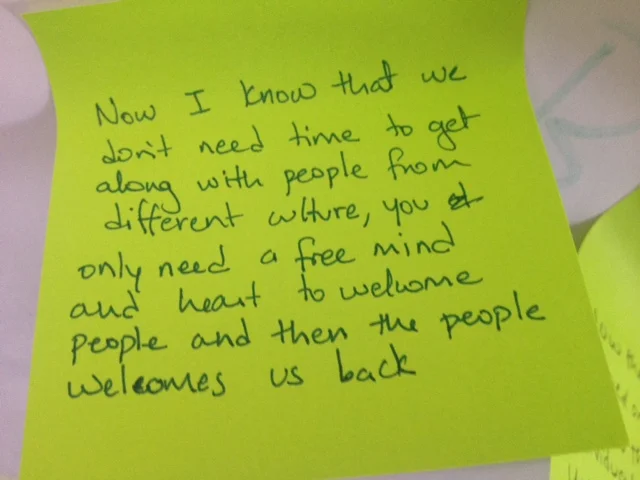 Now I know that we
don't need time to get
along with people from
different culture, you
only need a free mind
and heart to welcome
people and then the people
welcomes us back